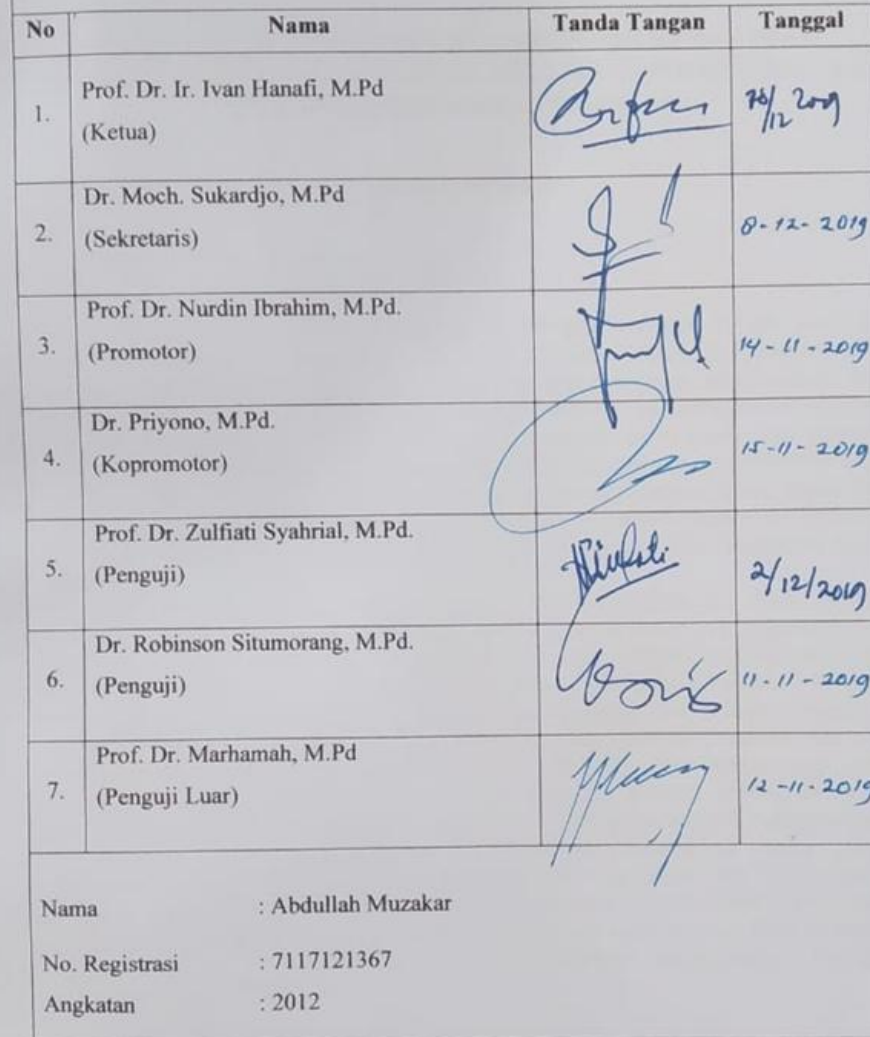 No Nama Tanda Tangan Tanggal
1. Prof. Dr. Ir. Ivan Hanafi, M.Pd
(Ketua)
/12 2019
2. Dr. Moch. Sukardjo, M.Pd
(Sekretaris)
8-12-2019
3. Prof. Dr. Nurdin Ibrahim, M.Pd.
(Promotor)
14-11-2019
4. Dr. Priyono, M.Pd.
(Kopromotor)
15-11-2019
5. Prof. Dr. Zulfiati Syahrial, M.Pd.
(Penguji)
2/12/2019
6. Dr. Robinson Situmorang, M.Pd.
(Penguji)
11-11-2019
7. Prof. Dr. Marhamah, M.Pd
(Penguji Luar)
12-11-2019
Nama : Abdullah Muzakar
No. Registrasi : 7117121367
Angkatan : 2012